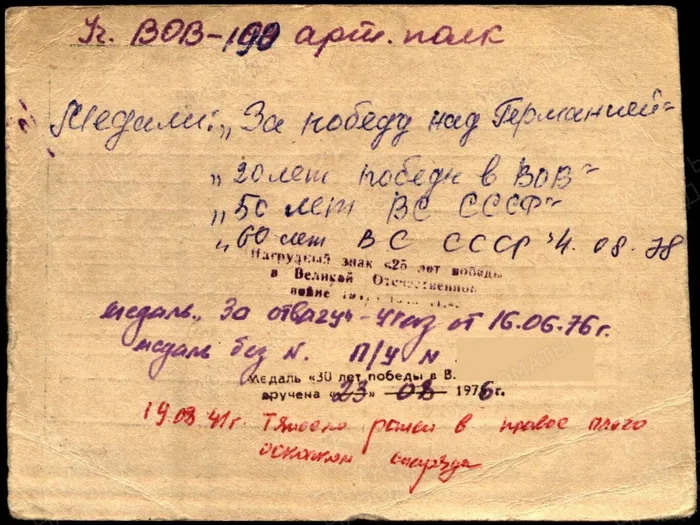 Уч. ВОВ - 190 арт. полк
Медали: „За победу над Германией"
„20 лет победы в ВОВ"
„50 лет ВС СССР"
„60 лет ВС СССР" 4.08.78
Нагрудный знак «25 лет победы
в Великой Отечественной
войне
медаль „За отвагу" - указ от 16.06.76 г.
медаль без N. П/у N
Медаль «30 лет победы в В.
вручена «23» 08 1976 г.
19 03 41 г. Тяжело ранен в правое плечо
осколком снаряда